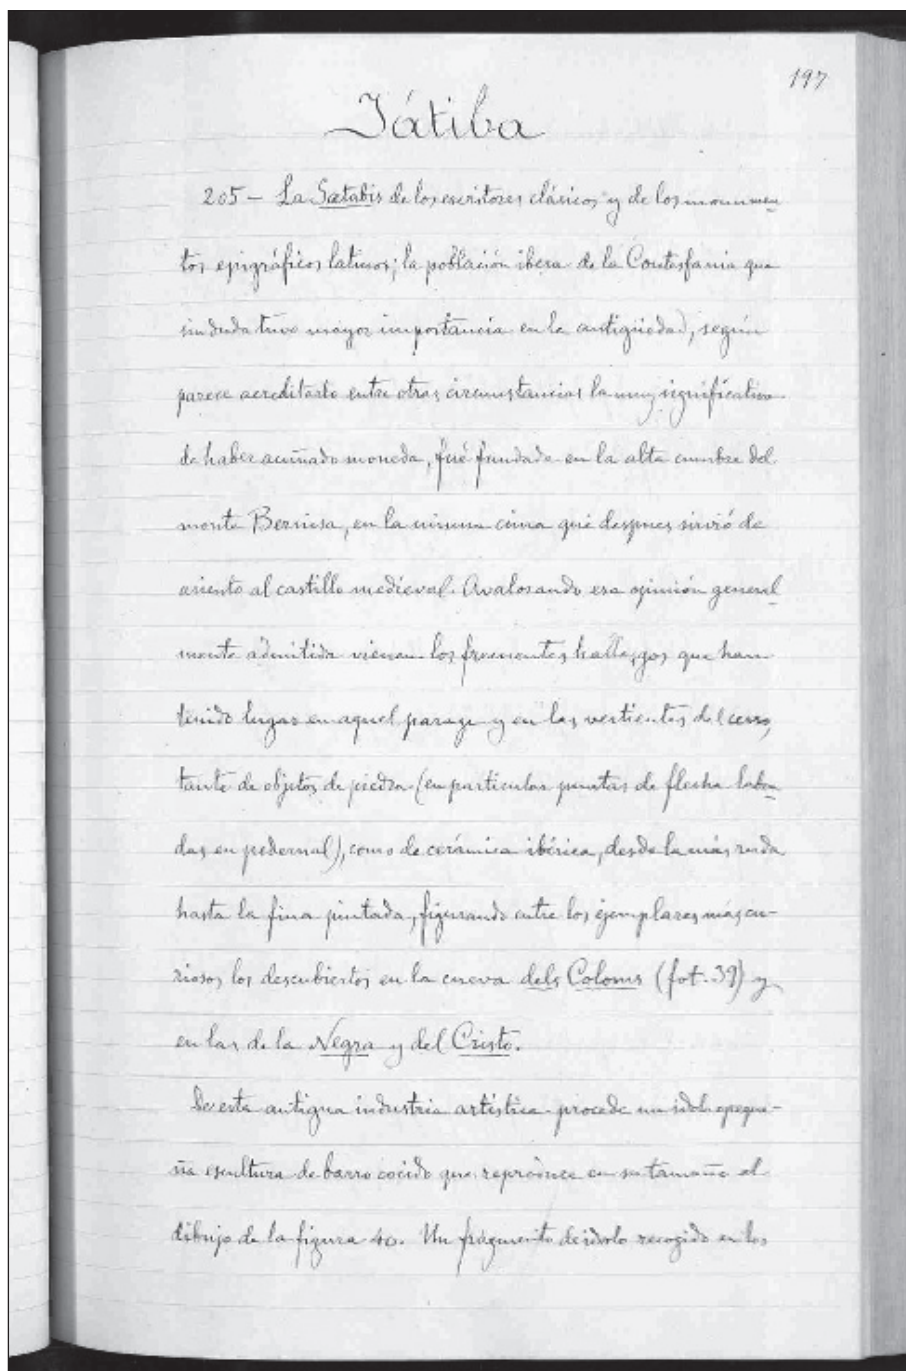 197
Játiba
205 — La Sætabis de los escritores clásicos y de los monumen
tos epigráficos latinos; la población ibera de la Contesfania que
sin duda tuvo mayor importancia en la antigüedad, según
parece acreditarlo entre otras circunstancias la muy significativa
de haber acuñado moneda, fué fundada en la alta cumbre del
monte Bernisa, en la misma cima que despues sirvió de
asiento al castillo medieval. Avalorando esa opinión general
mente admitida vienen los frecuentes hallazgos que han
tenido lugar en aquel parage y en las vertientes del cerro,
tanto de objetos de piedra (en particular puntas de flecha labra
das en pedernal), como de cerámica ibérica, desde la más ruda
hasta la fina pintada, figurando entre los ejemplares más cu-
riosos los descubiertos en la cueva dels Coloms (fot. 39) y
en las de la Negra y del Cristo.
De esta antigua industria artística procede un idolo o peque-
ña escultura de barro cocido que reproduce en su tamaño el
dibujo de la figura 40. Un fragmento de idolo recogido en los